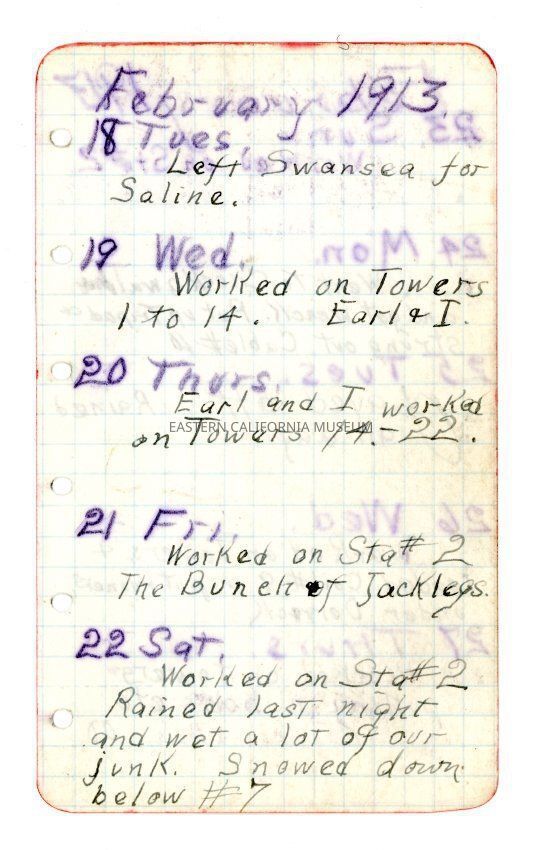 February 1913.
18 Tues.
Left Swansea for
Saline.
19 Wed.
Worked on Towers
1 to 14. Earl & I.
20 Thurs.
Earl and I worked
on Towers 14.-22.
EASTERN CALIFORNIA MUSEUM
21 Fri.
Worked on Sta# 2
The Bunch of Jacklegs.
22 Sat.
Worked on Sta# 2
Rained last night
and wet a lot of our
junk. Snowed down
below #7